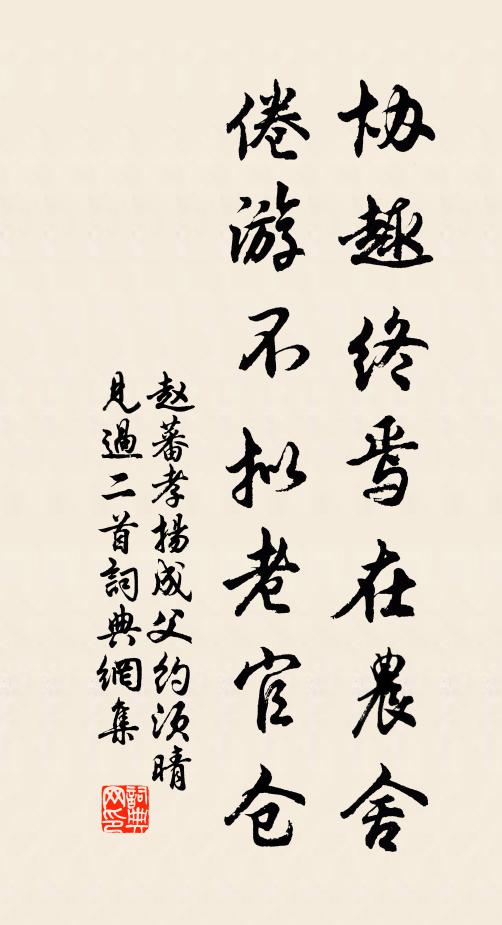 协趣终焉在農舍
倦游不拟老官仓
赵蕃孝揚成父约须晴
見過二首詞典網集
詞典网印